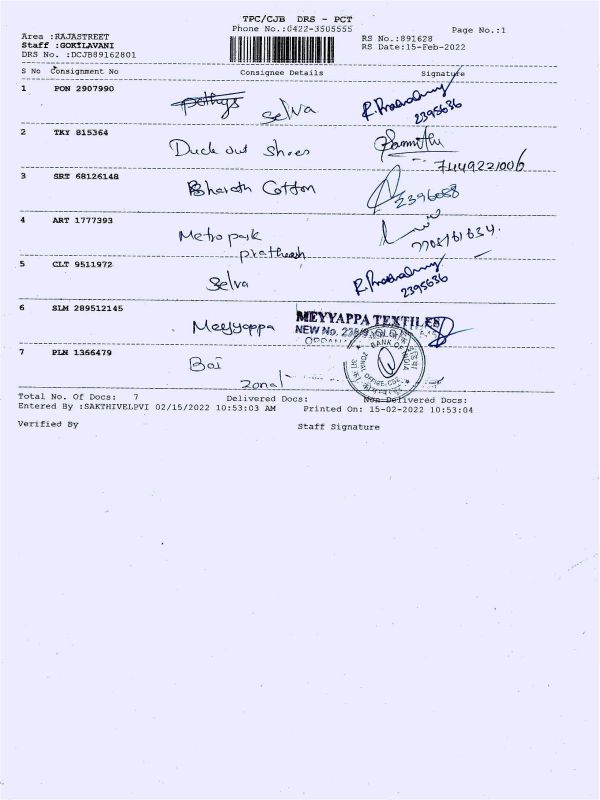 TPC/CJB DRS - PCT
Phone No.:0422-3505555
Page No.:1
Area :RAJASTREET
Staff :GOKILAVANI
DRS No. :DCJB89162801
RS No.:891628
RS Date:15-Feb-2022
S No Consignment No Consignee Details Signature
1 PON 2907990
pothys Selva
2395636
2 TKY 815364
Duck out Shoes
7449221006
3 SRT 68126148
Bharath Cotton
2396088
4 ART 1777393
Metro park
pratheesh
5 CLT 9511972
Selva
2395636
6 SLM 289512145
MEYYAPPA TEXTILES
Meyyappa NEW No.
7 PLN 1366479
BOI
BANK OF INDIA
Zonal
Total No. Of Docs: 7 Delivered Docs: Non Delivered Docs:
Entered By :SAKTHIVELPVI 02/15/2022 10:53:03 AM Printed On: 15-02-2022 10:53:04
Verified By Staff Signature